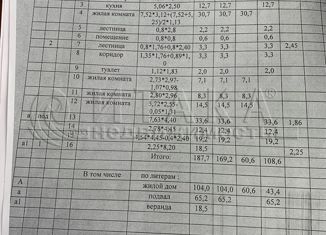 3 кухня 5,06*2,50
4 жилая комната 7,52*3,12+(7,52+5, 30,7 30,7 30,7
25)/2*1,13
5 лестница 0,8*2,8 2,2 2,2 2,2
6 помещение 0,8*0,8 0,6 0,6 0,6
2 7 лестница 0,8*1,76+0,8*2,40 3,3 3,3 3,3 2,45
8 коридор 1,35*1,76+0,89*1 3,3 3,3 3,3
9 туалет 1,12*1,83 2,0 2,0 2,0
10 жилая комната 2,73*2,97- 7,1 7,1 7,1
1,07*0,98
11 жилая комната 2,80*2,96 8,3 8,3 8,3
12 жилая комната 5,72*2,55- 14,5 14,5 14,5
0,05*1,31
а под 13 7,63*4,40 33,6 33,6 33,6 1,86
14 2,78*4,45 12,4 12,4 12,4
15 19,2 19,2 19,2
а1 1 16 2,25*8,20 18,5 2,25
Итого: 187,7 169,2 60,6 108,6
В том числе по литерам:
А жилой дом 104,0 104,0 60,6 43,4
а подвал 65,2 65,2 65,2
а1 веранда 18,5